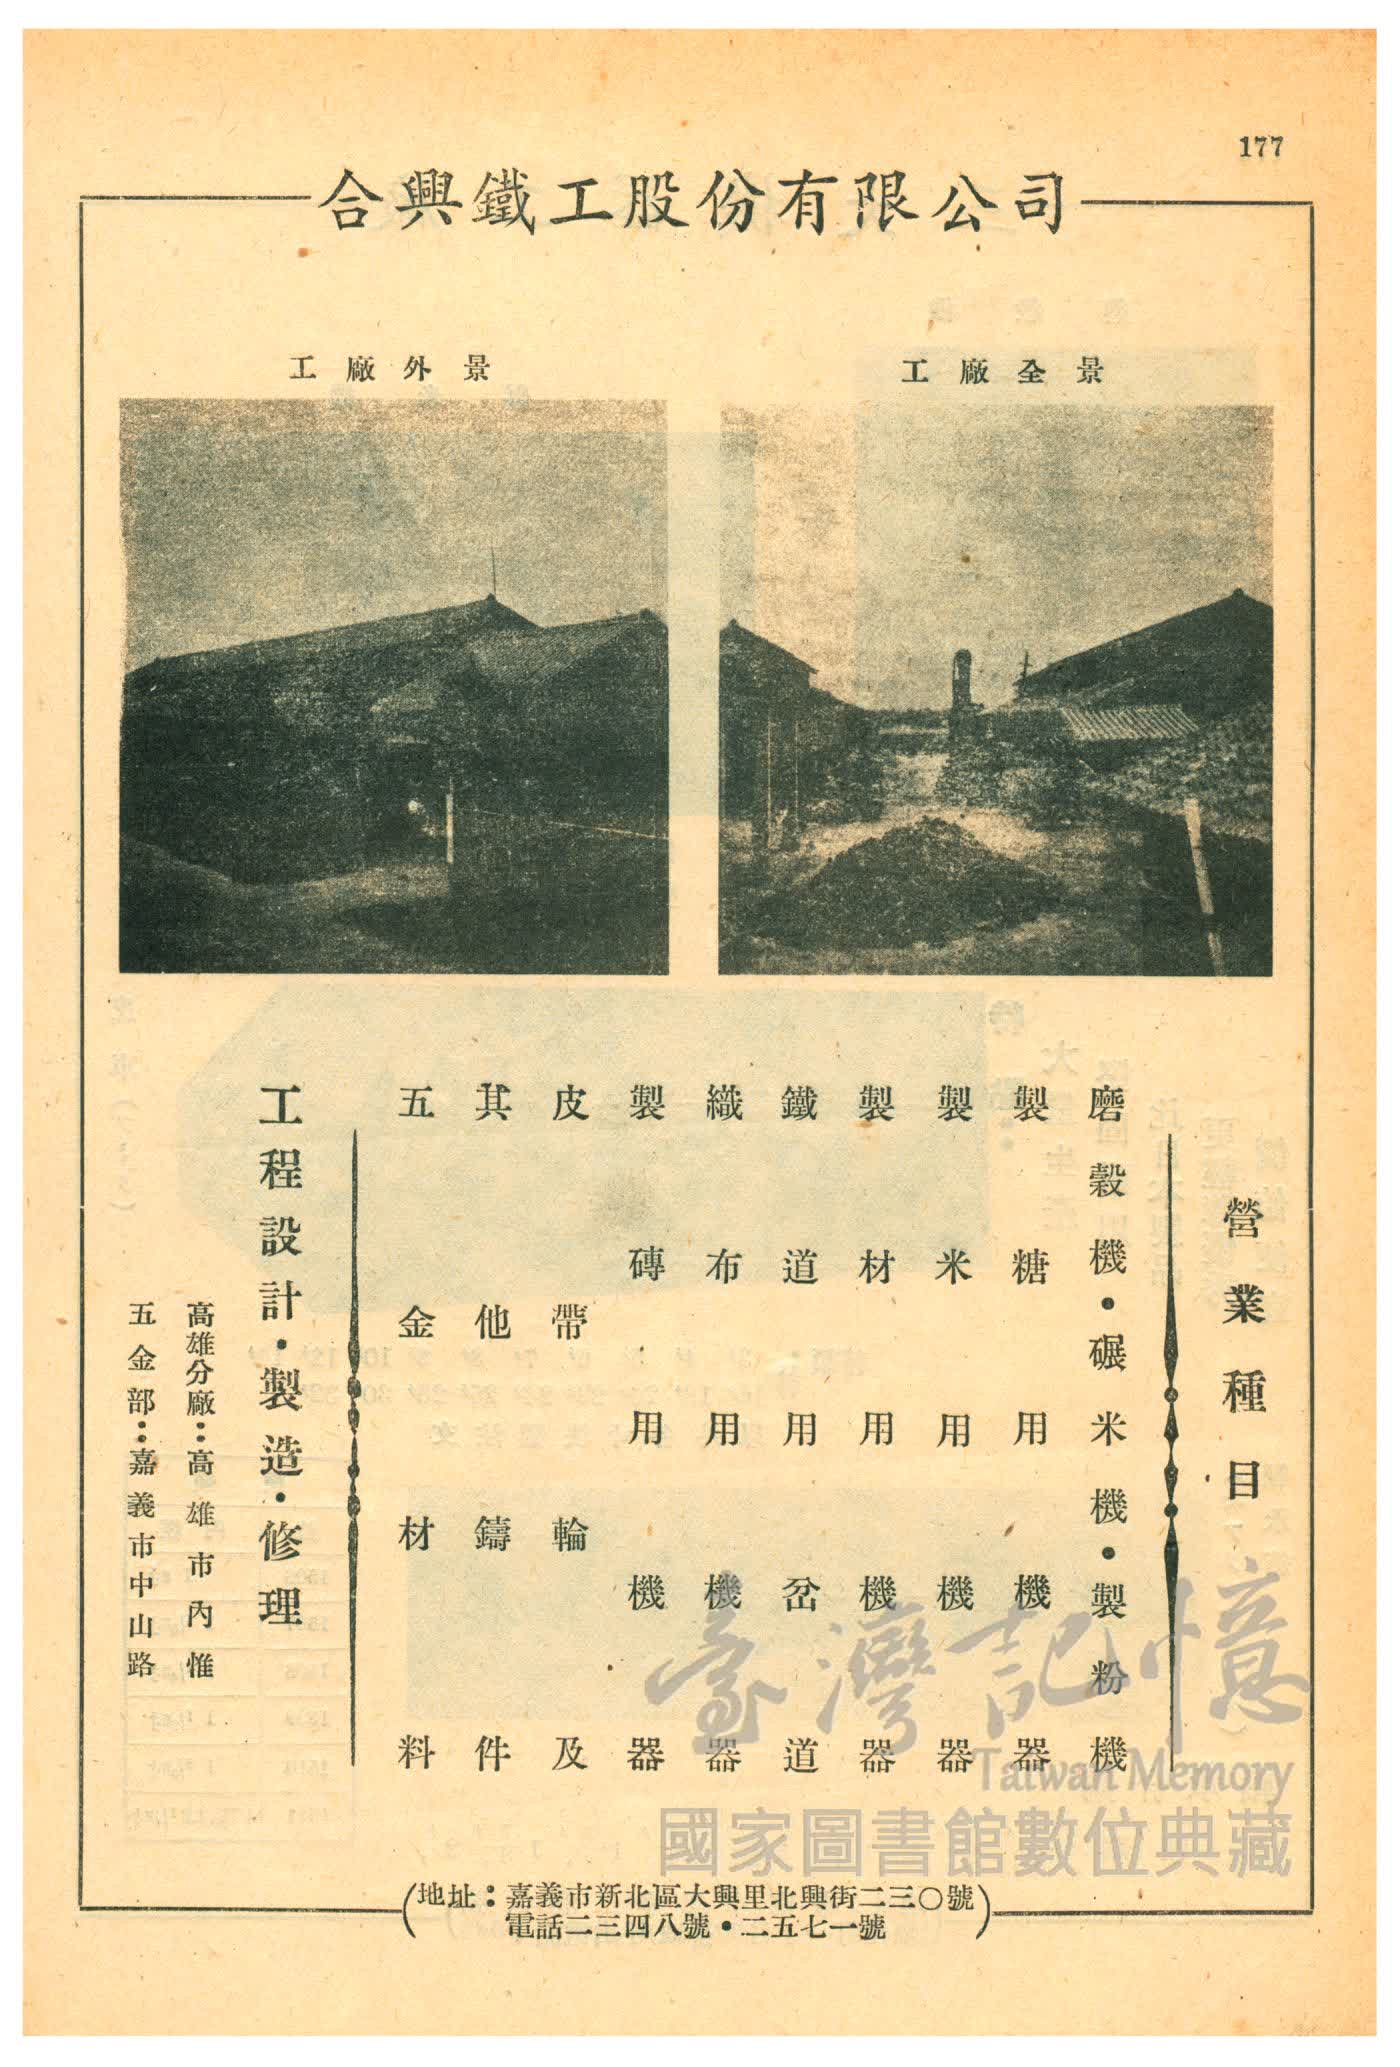 177
合興鐵工股份有限公司
工廠外景
工廠全景
營業種目
磨穀機・碾米機・製粉機
製糖用機器
製米用機器
製材用機器
鐵道用岔道
織布用機器
製磚用機器
皮帶輪及
其他鑄件
五金材料
工程設計・製造・修理
高雄分廠：高雄市內惟
五金部：嘉義市中山路
(地址：嘉義市新北區大興里北興街二三〇號
電話二三四八號・二五七一號)
臺灣記憶
Taiwan Memory
國家圖書館數位典藏